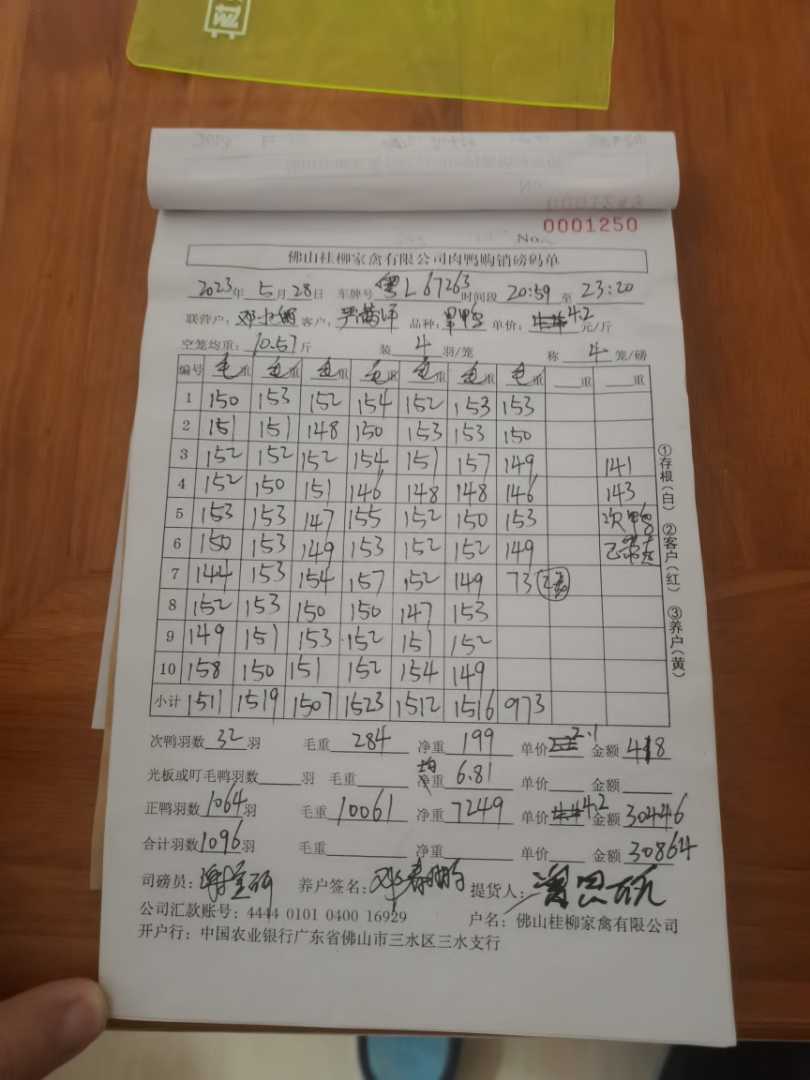 No.
0001250
佛山桂柳家禽有限公司肉鸭购销磅码单
2023年 5月28日 车牌号 粤L67263 时间段 20:59 至 23:20
联营户: 邓 客户: 品种: 单价: 4.2 元/斤
空笼均重: 10.57 斤 装 4 羽/笼 称 4 笼/磅
编号 毛重 毛重 毛重 毛重 毛重 毛重 毛重 重 重
1 150 153 152 154 152 153 153
2 151 151 148 150 153 153 150
3 152 152 152 154 151 157 149 141
4 152 150 151 146 148 148 146 143
5 153 153 147 155 152 150 153 次鸭
6 150 153 149 153 152 152 149 正常
7 144 153 154 157 152 149 73
8 152 153 150 150 147 153
9 149 151 153 152 151 152
10 158 150 151 152 154 149
小计 1511 1519 1507 1523 1512 1516 973
①存根(白) ②客户(红) ③养户(黄)
次鸭羽数 32 羽 毛重 284 净重 199 单价 2.1 金额 418
光板或叮毛鸭羽数 羽 毛重 均重 6.81 单价 金额
正鸭羽数 1064 羽 毛重 10061 净重 7249 单价 4.2 金额 30446
合计羽数 1096 羽 毛重 净重 单价 金额 30864
司磅员: 养户签名: 邓春 提货人:
公司汇款账号: 4444 0101 0400 16929 户名: 佛山桂柳家禽有限公司
开户行: 中国农业银行广东省佛山市三水区三水支行